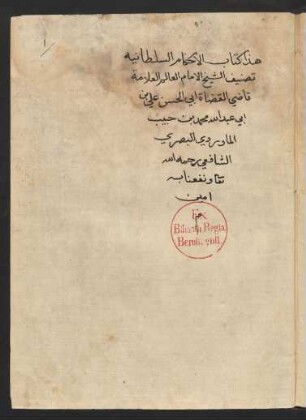 هذا كتاب الاحكام السلطانيه
تصنيف الشيخ الامام العالم العلامة
قاضي القضاة ابي الحسن علي بن
ابي عبد الله محمد بن حبيب
الماوردي البصري
الشافعي رحمه الله
ونفعنا به
امين
Ex
Biblioth. Regia
Berolinensi.